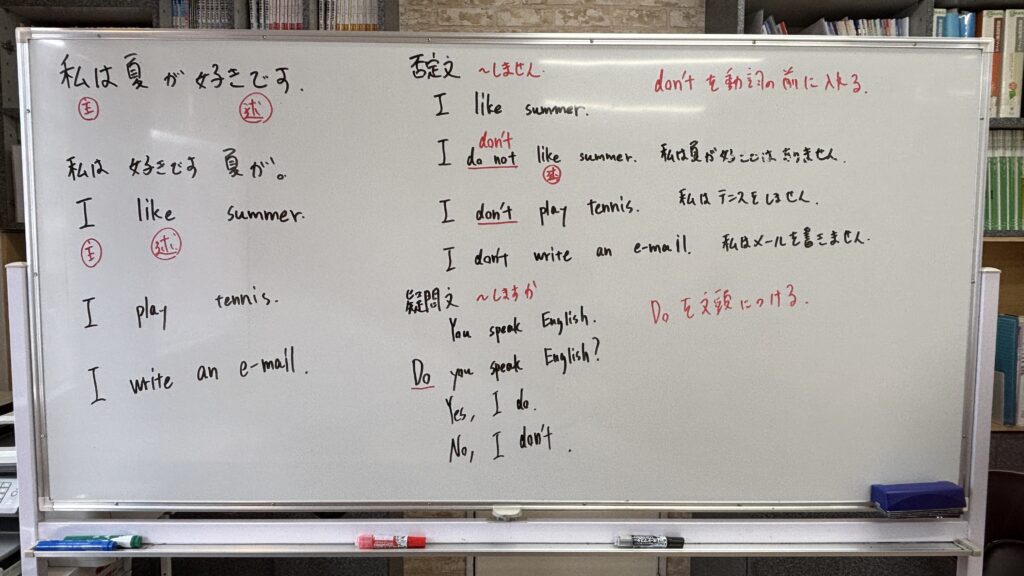 私は夏が好きです.
主 述
私は 好きです 夏が。
I like summer.
主 述
I play tennis.
I write an e-mail.
否定文 ~しません.
don'tを動詞の前に入れる.
I like summer.
don't
I do not like summer. 私は夏が好きではありません.
述
I don't play tennis. 私はテニスをしません.
I don't write an e-mail. 私はメールを書きません.
疑問文 ~しますか
Doを文頭につける.
You speak English.
Do you speak English?
Yes, I do.
No, I don't.